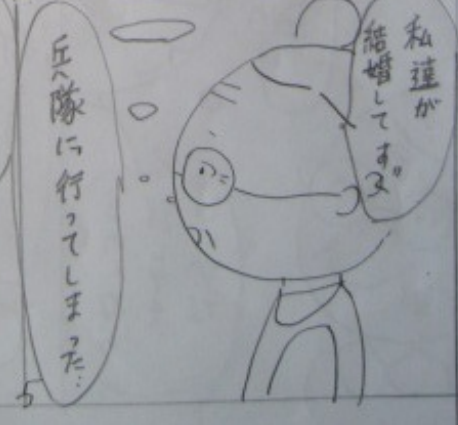 私達が
結婚してすぐ
兵隊に行ってしまった…